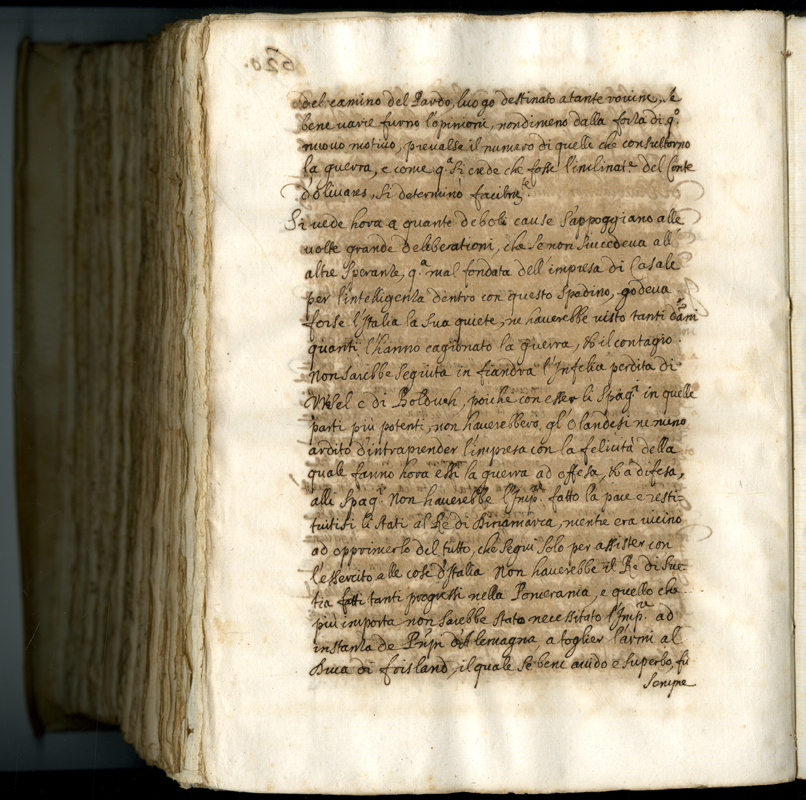 del camino del Pardo, luogo destinato a tante rovine, se
bene varie furno l'opinioni, nondimeno dalla forza di q.o
nuovo motivo, prevalse il numero di quelli che consultorno
la guerra, e come q.a si crede che fosse l'inclinat.e del Conte
d'Olivares, si determinò facilm.te
Si vede hora a quante deboli cause s'appoggiano alle
volte grande deliberationi, che se non succedeva all'
altre speranze, q.a mal fondata dell'impresa di Casale
per l'intelligenza dentro con questo Spadino, godeva
forse l'Italia la sua quiete, ne haverebbe visto tanti dãni
quanti l'hanno cagionato la guerra, et il contagio.
Non sarebbe seguita in fiandra l'infelice perdita di
Vesel e di Bolduch, poiche con esser li Spag.i in quelle
parti più potenti, non haverebbero gl'Olandesi ne meno
ardito d'intraprender l'impresa con la felicità della
quale fanno hora essi la guerra ad offesa, et a difesa,
alli Spag.i Non haverebbe l'Imp.re fatto la pace e resti-
tuitisi li stati al Re di Danimarca, mentre era vicino
ad opprimerlo del tutto, che seguì solo per assister con
l'essercito alle cose d'Italia Non haverebbe il Re di Sue-
tia fatti tanti progressi nella Pomerania, e quello che
più importa non sarebbe stato necessitato l'Imp.re ad
instanza de Prñpi d'Alemagna a toglier l'armi al
Duca di Frisland, il quale se bene avido e superbo, fù
sempre